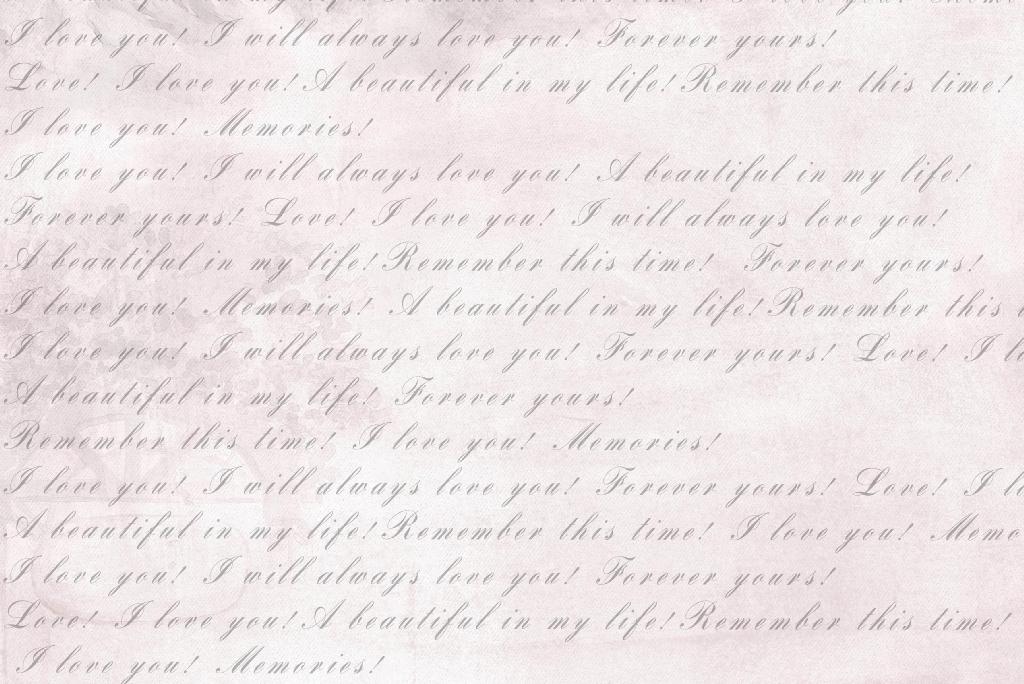 I love you! I will always love you! Forever yours!
Love! I love you! A beautiful in my life! Remember this time!
I love you! Memories!
I love you! I will always love you! A beautiful in my life!
Forever yours! Love! I love you! I will always love you!
A beautiful in my life! Remember this time! Forever yours!
I love you! Memories! A beautiful in my life! Remember this
I love you! I will always love you! Forever yours! Love! I
A beautiful in my life! Forever yours!
Remember this time! I love you! Memories!
I love you! I will always love you! Forever yours! Love! I
A beautiful in my life! Remember this time! I love you! Memo
I love you! I will always love you! Forever yours!
Love! I love you! A beautiful in my life! Remember this time!
I love you! Memories!